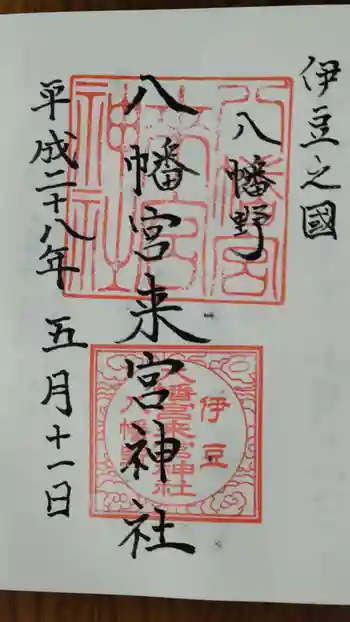 伊豆之國
八幡野
八幡宮来宮神社
平成二十八年五月十一日
伊豆
八幡宮来宮神社
八幡野